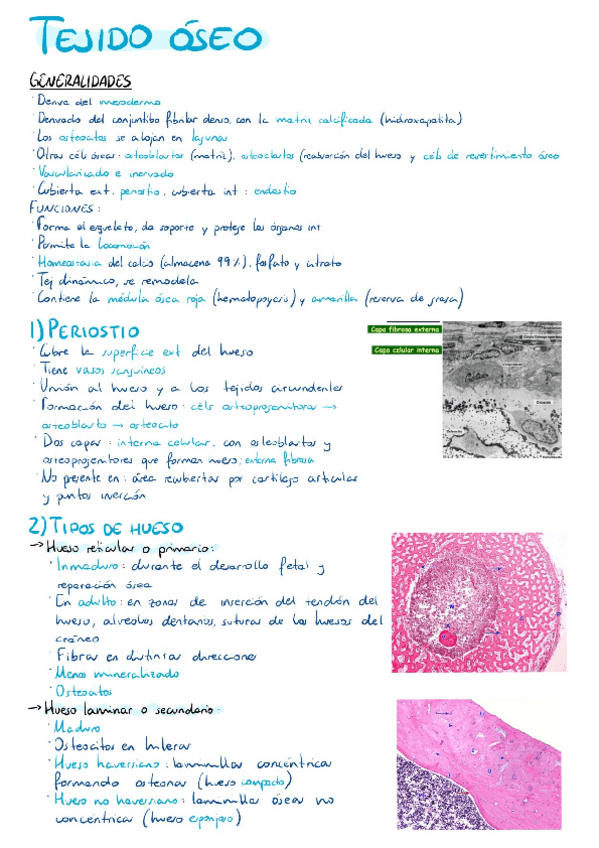 TEJIDO ÓSEO
GENERALIDADES
· Deriva del mesodermo
· Derivado del conjuntivo fibrilar denso, con la matriz calcificada (hidroxapatita)
· Los osteocitos se alojan en lagunas
· Otras céls óseas: osteoblastos (matriz), osteoclastos (reabsorción del hueso y céls de revestimiento óseo
· Vascularizado e inervado
· Cubierta ext. periostio, cubierta int: endostio
FUNCIONES:
· Forma el esqueleto, da soporte y protege los órganos int
· Permite la locomoción
· Homeostasia del calcio (almacena 99%), fosfato y citrato
· Tej dinámico, se remodela
· Contiene la médula ósea roja (hematopoyesis) y amarilla (reserva de grasa)
1) PERIOSTIO
· Cubre la superficie ext del hueso
· Tiene vasos sanguíneos
· Unión al hueso y a los tejidos circundentes
· Formación del hueso: céls osteoprogenitoras →
osteoblasto → osteocito
· Dos capas: interna celular, con osteoblastos y
osteoprogenitores que forman hueso; externa fibrosa
· No presente en: área recubiertas por cartílago articular
y puntos inserción
Capa fibrosa externa
Capa celular interna
2) TIPOS DE HUESO
→ Hueso reticular o primario:
· Inmaduro: durante el desarrollo fetal y
reparación ósea
· En adulto: en zonas de inserción del tendón del
hueso, alveolos dentarios, suturas de los huesos del
cráneo
· Fibras en distintas direcciones
· Menos mineralizado
· Osteocitos
→ Hueso laminar o secundario:
· Maduro
· Osteocitos en hileras
· Hueso haversiano: laminillas concéntricas
formando osteonas (hueso compacto)
· Hueso no haversiano: laminillas óseas no
concéntricas (hueso esponjoso)